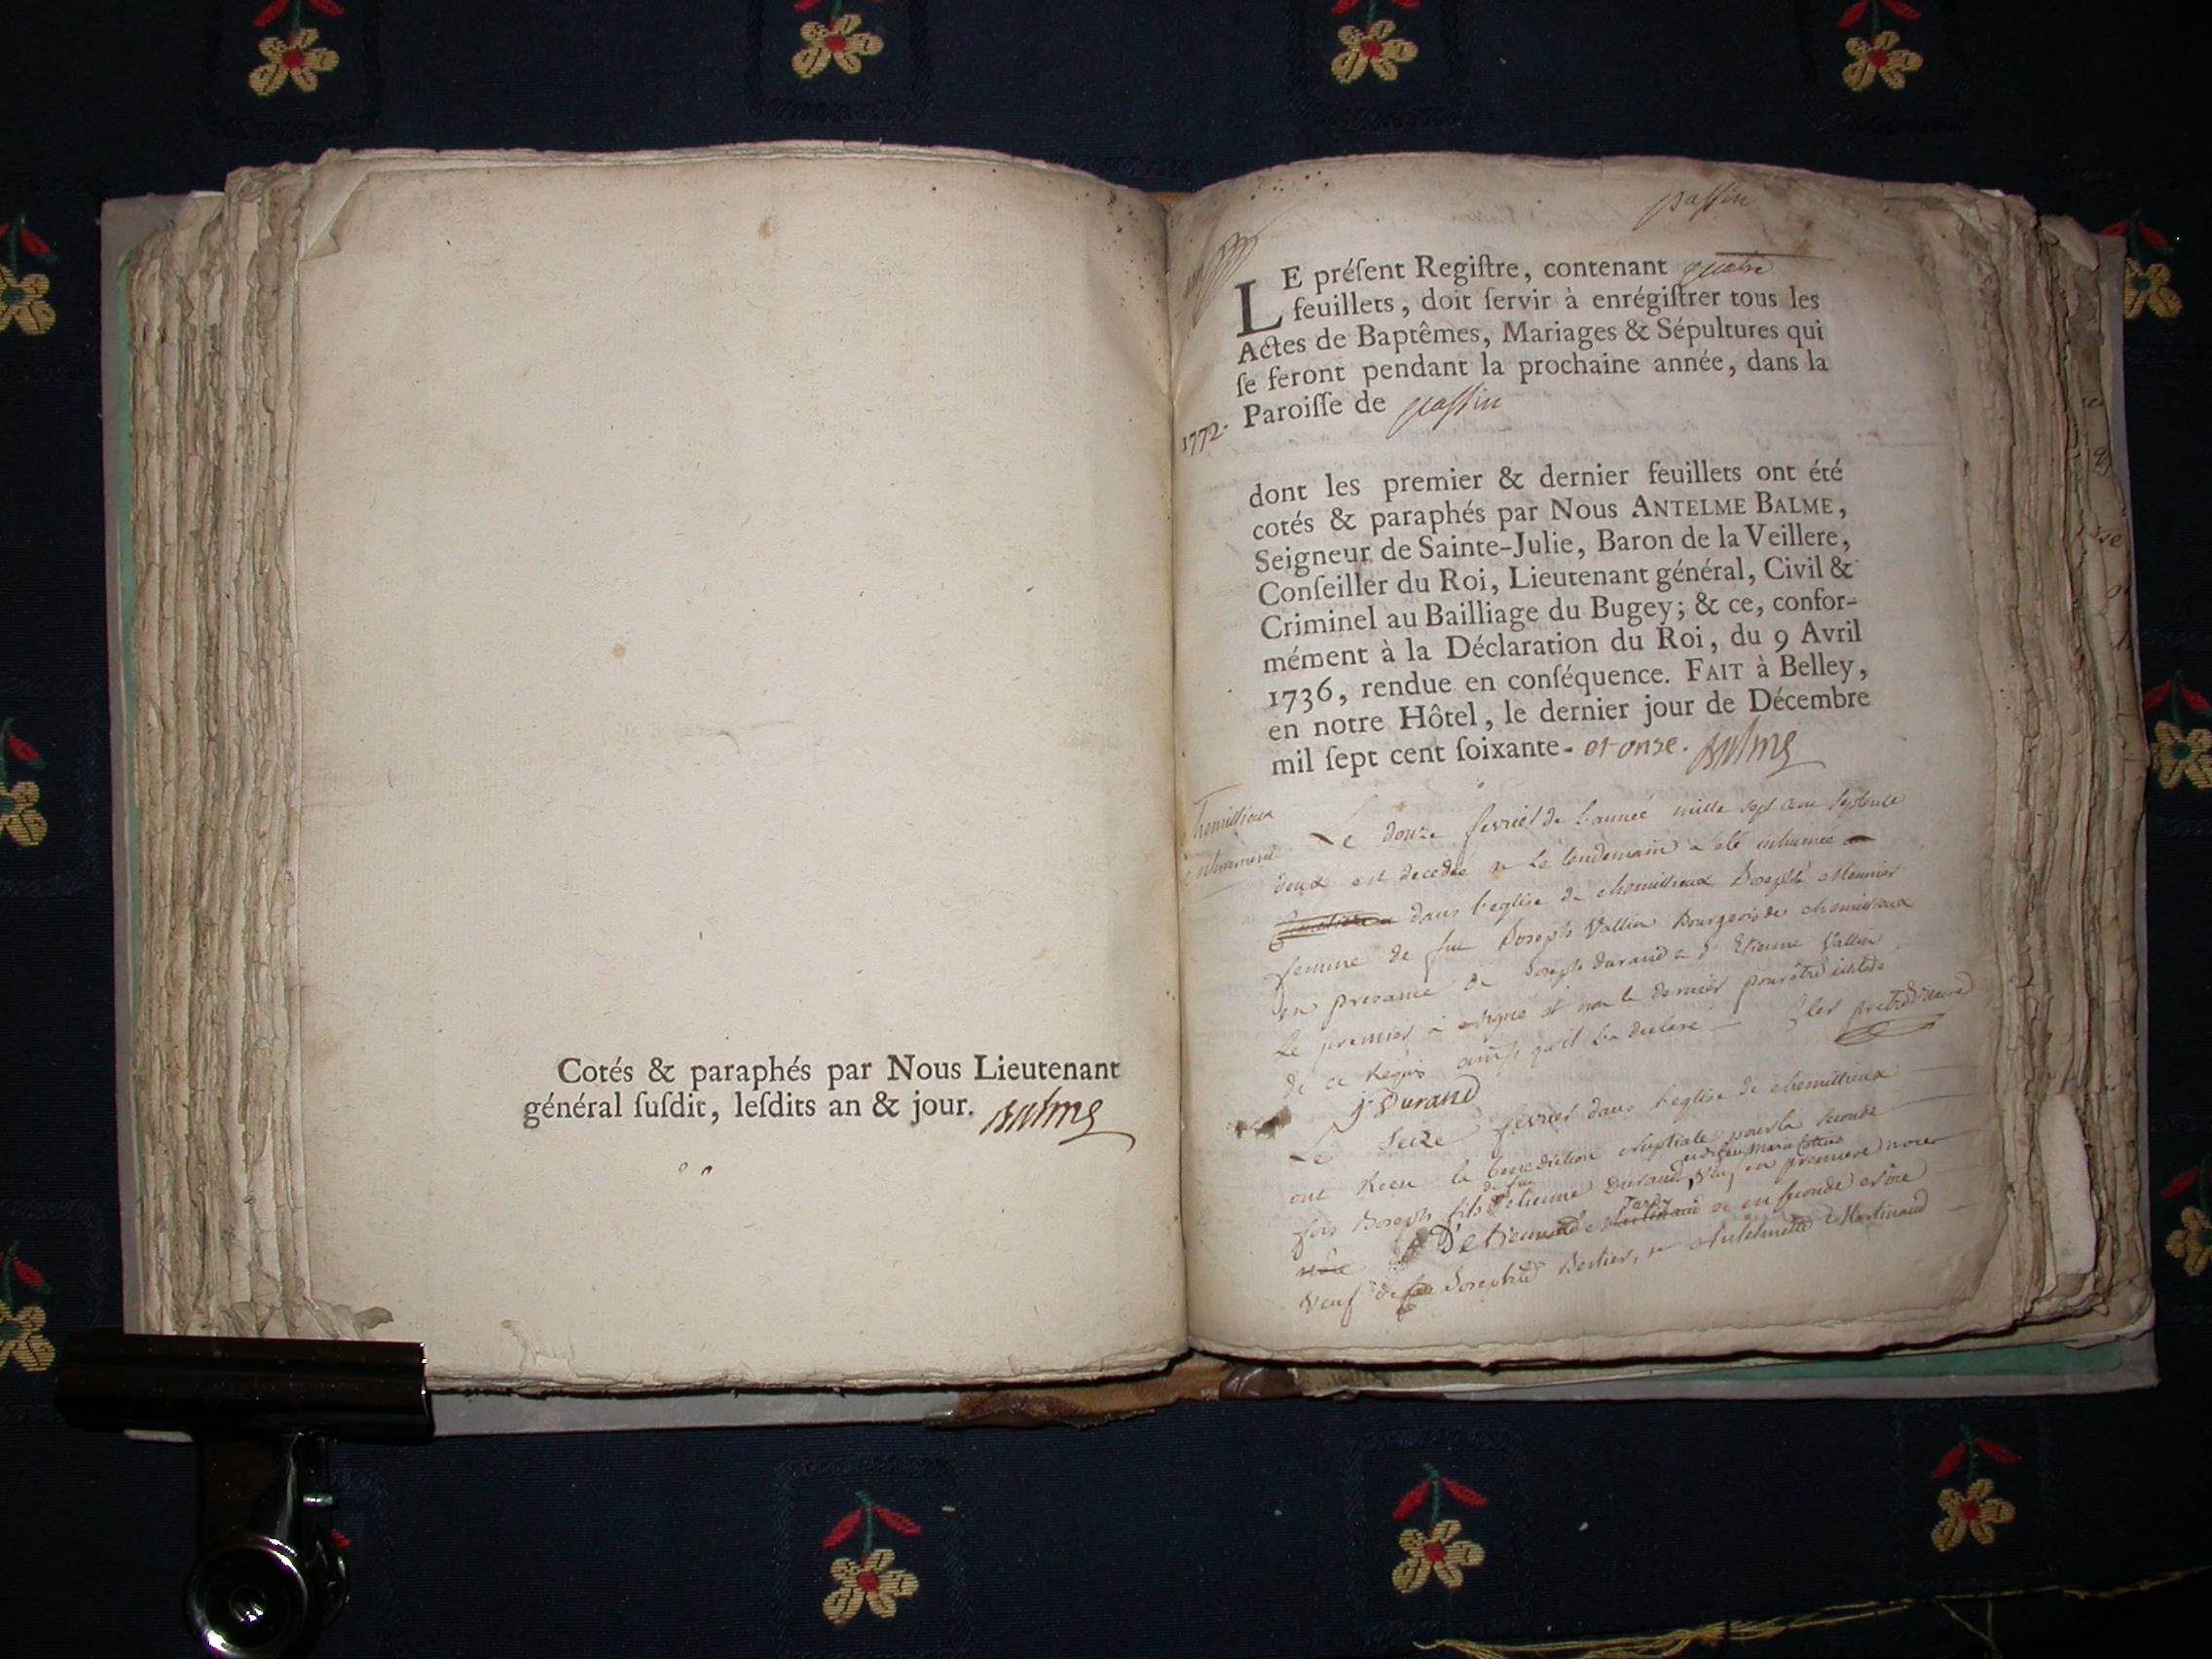 Cotés & paraphés par Nous Lieutenant
général ſuſdit, leſdits an & jour. Balme
paſſin
LE préſent Regiſtre, contenant quatre
feuillets, doit ſervir à enrégiſtrer tous les
Actes de Baptêmes, Mariages & Sépultures qui
ſe feront pendant la prochaine année, dans la
1772. Paroiſſe de paſſin
dont les premier & dernier feuillets ont été
cotés & paraphés par Nous ANTELME BALME,
Seigneur de Sainte-Julie, Baron de la Veillere,
Conſeiller du Roi, Lieutenant général, Civil &
Criminel au Bailliage du Bugey; & ce, confor-
mément à la Déclaration du Roi, du 9 Avril
1736, rendue en conſéquence. FAIT à Belley,
en notre Hôtel, le dernier jour de Décembre
mil ſept cent ſoixante- et onze. Balme
chemillieux
enterrement
Le douze fevrier de l'année mille sept cent septente
deux est decedée et le lendemain a été inhumée
dans l'eglise de chemillieux Josephte Meunier
femme de feu Joseph Vallin Bourgeois de chemillieux
en presence de Joseph durand et d'Etienne Vallin
Le premier a signé et non le dernier pour être
de ce Requis ainsi qu'il l'a declaré
J. Durand
Le Seize fevrier dans l'eglise de chemillieux
ont Recu la benediction Nuptiale pour la seconde
fois Joseph fils de feu etienne Durand, en premiere noce
D'etiennette Tardy et en seconde
Veuf de Josephte Bertier, et Anthelmette Martinand